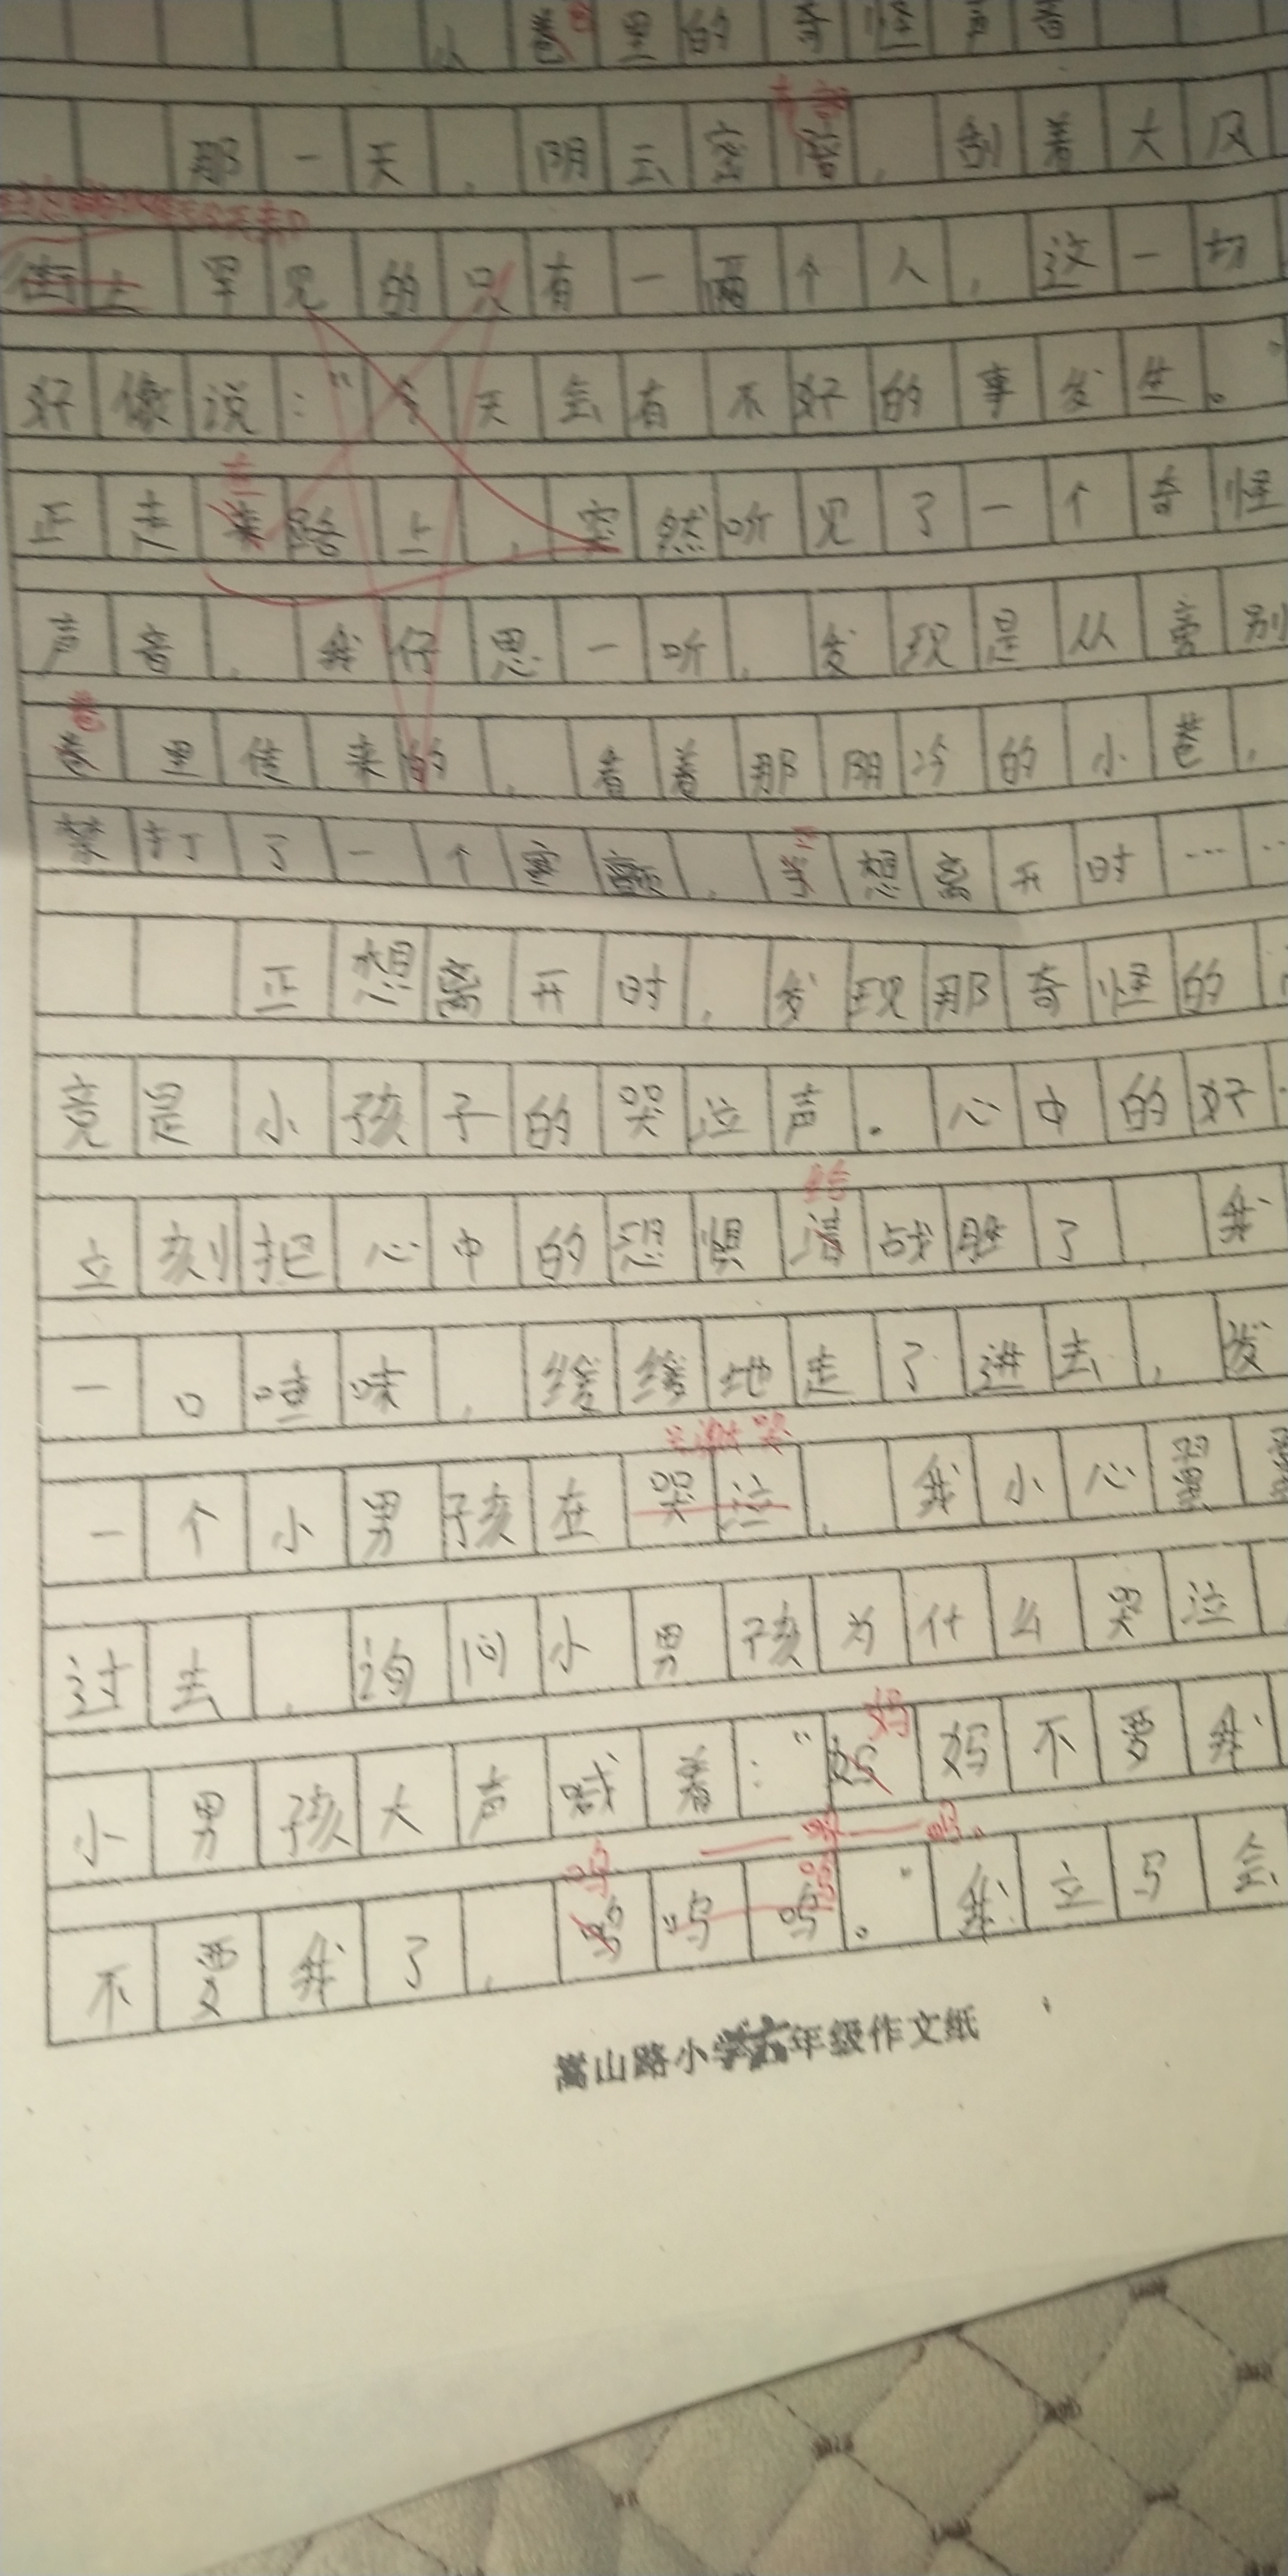 小巷里的奇怪声音
布
那一天,阴云密,刮着大风
街上罕见的只有一两个人,这一切
好像说:“今天会有不好的事发生。”
在
正走来路上,突然听见了一个奇怪
声音,我仔思一听,发现是从旁别
巷
巷里传来的,看着那阴冷的小巷,
正
禁打了一个寒颤,当想离开时……
正想离开时,发现那奇怪的
竟是小孩子的哭泣声。心中的好
给
立刻把心中的恐惧战胜了 我
一口唾味,缓缓地走了进去,发
哭
一个小男孩在哭泣,我小心翼翼
过去,询问小男孩为什么哭泣
妈
小男孩大声喊着:“妈妈不要我
呜——呜——呜。
不要我了,呜呜呜。”我立马会
嵩山路小学六年级作文纸